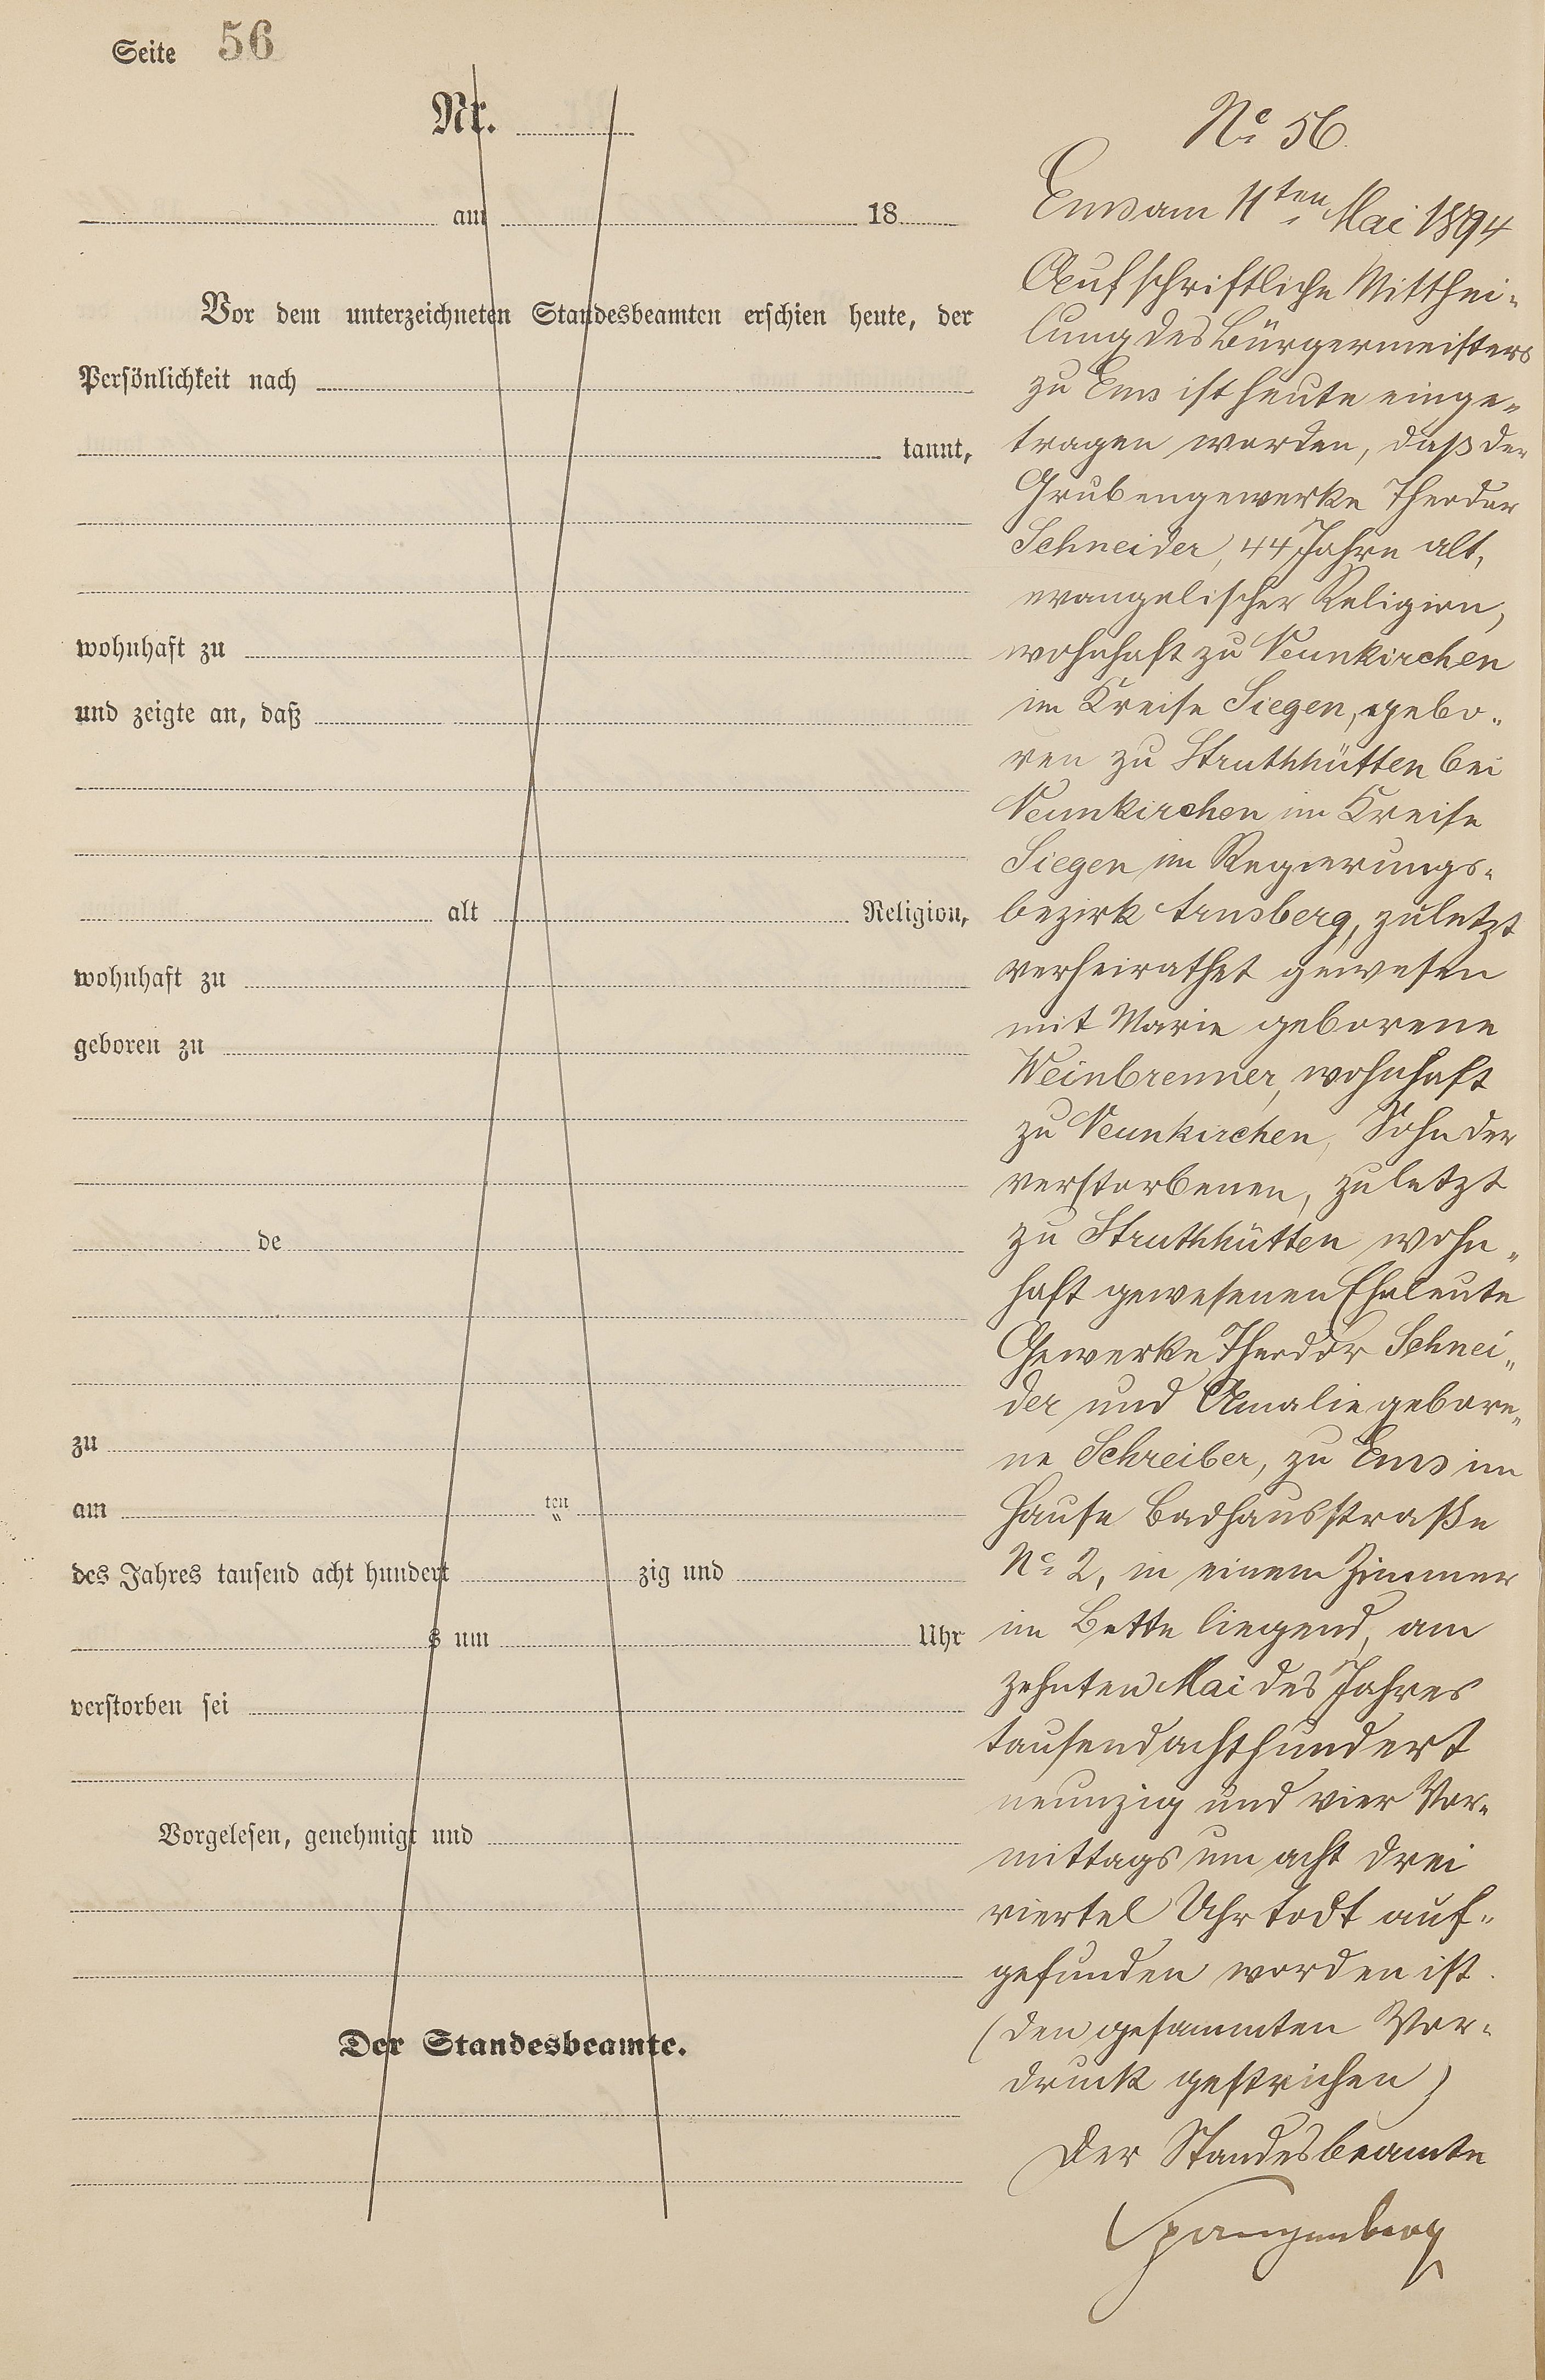 Seite 56
Nr.
am 18
Vor dem unterzeichneten Standesbeamten erschien heute, der
Persönlichkeit nach
kannt,
wohnhaft zu
und zeigte an, daß
alt Religion,
wohnhaft zu
geboren zu
de
zu
am ten
des Jahres tausend acht hundert zig und
s um Uhr
verstorben sei
Vorgelesen, genehmigt und
Der Standesbeamte.
No 56.
Ems am 11ten Mai 1894
Auf schriftliche Mitthei-
lung des Bürgermeisters
zu Ems ist heute einge-
tragen worden, daß der
Grubengewerke Theodor
Schneider, 44 Jahre alt,
evangelischer Religion,
wohnhaft zu Neunkirchen
im Kreise Siegen, gebo-
ren zu Struthhütten bei
Neunkirchen im Kreise
Siegen im Regierungs-
bezirk Arnsberg, zuletzt
verheirathet gewesen
mit Marie geborene
Weinbrenner, wohnhaft
zu Neunkirchen, Sohn der
verstorbenen, zuletzt
zu Struthhütten wohn-
haft gewesenen Eheleute
Gewerke Theodor Schnei-
der und Amalie gebore-
ne Schreiber, zu Ems im
Hause Badhausstraße
No 2, in einem Zimmer
im Bette liegend, am
zehnten Mai des Jahres
tausend achthundert
neunzig und vier Vor-
mittags um acht drei
viertel Uhr todt auf-
gefunden worden ist.
(den gesammten Vor-
druck gestrichen)
Der Standesbeamte
Spangenberg